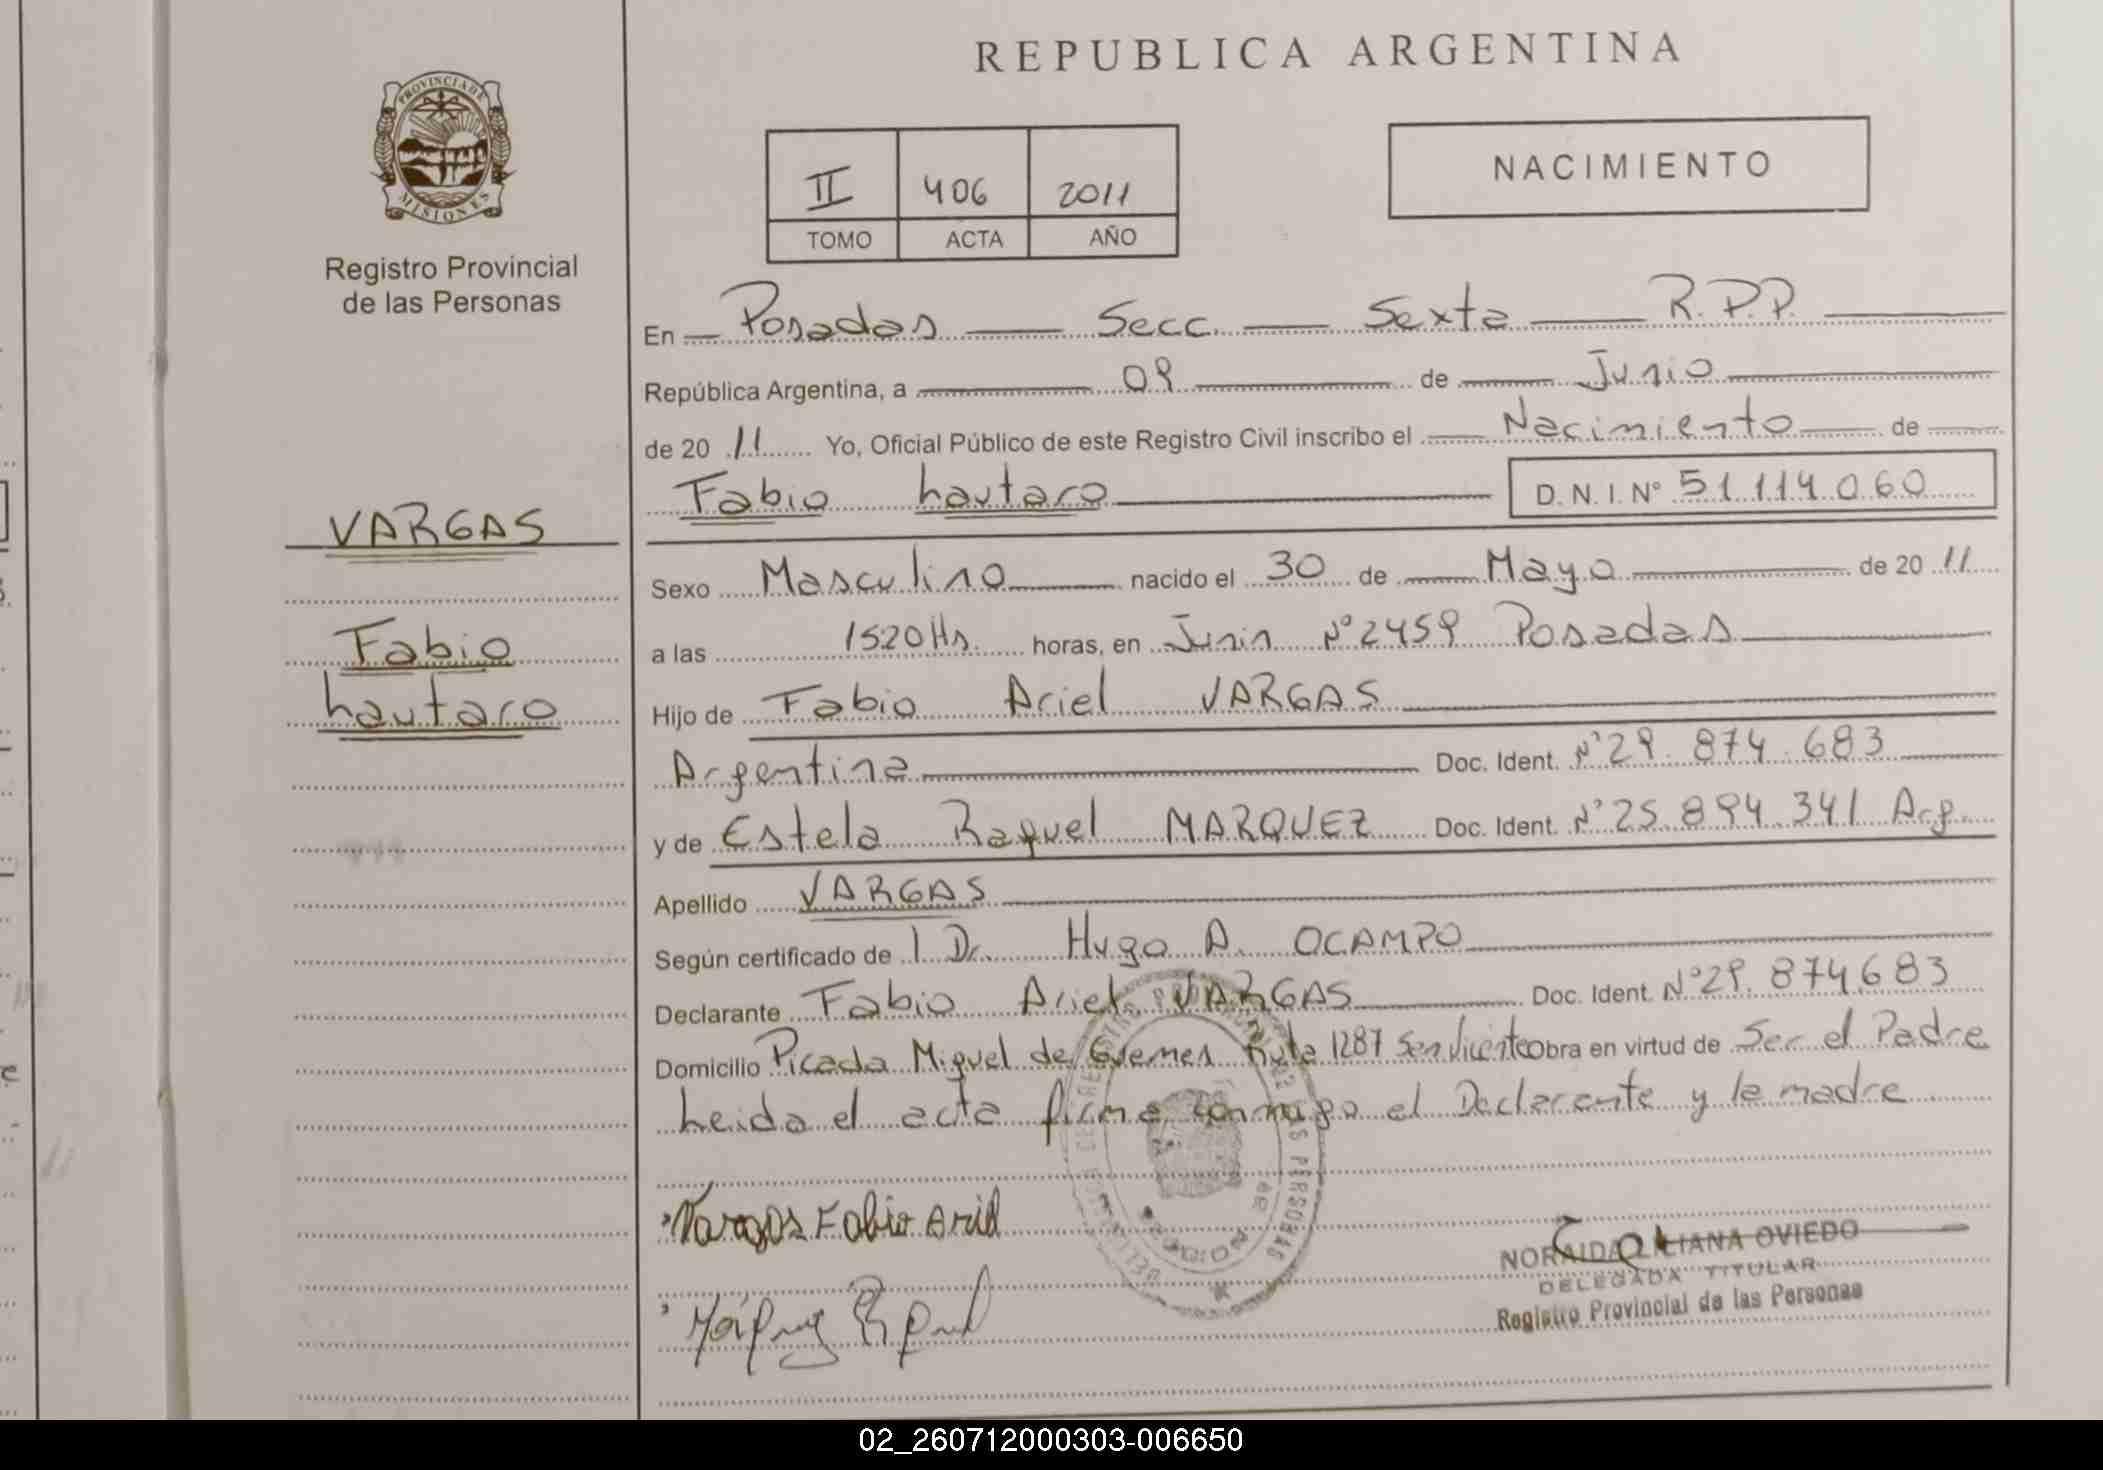 REPUBLICA ARGENTINA
PROVINCIA DE
MISIONES
Registro Provincial
de las Personas
II 406 2011
TOMO ACTA AÑO
NACIMIENTO
En Posadas Secc. Sexta R.P.P.
República Argentina, a 09 de Junio
de 2011 Yo, Oficial Público de este Registro Civil inscribo el Nacimiento de
Fabio Lautaro D.N.I. Nº 51.114.060
VARGAS
Fabio
Lautaro
Sexo Masculino nacido el 30 de Mayo de 2011
a las 1520Hs. horas, en Junin Nº2459 Posadas
Hijo de Fabio Ariel VARGAS
Argentina Doc. Ident. Nº29.874.683
y de Estela Raquel MARQUEZ Doc. Ident. Nº25.894.341 Arg.
Apellido VARGAS
Según certificado de l Dr. Hugo A. OCAMPO
Declarante Fabio Ariel VARGAS Doc. Ident. Nº29.874.683
Domicilio Picada Miguel de Guemes Ruta 1287 San Vicente obra en virtud de Ser el Padre
Leida el acta firma conmigo el Declarante y la madre
Vargas Fabio Ariel
NORAIDA LILIANA OVIEDO
DELEGADA TITULAR
Registro Provincial de las Personas
02_260712000303-006650